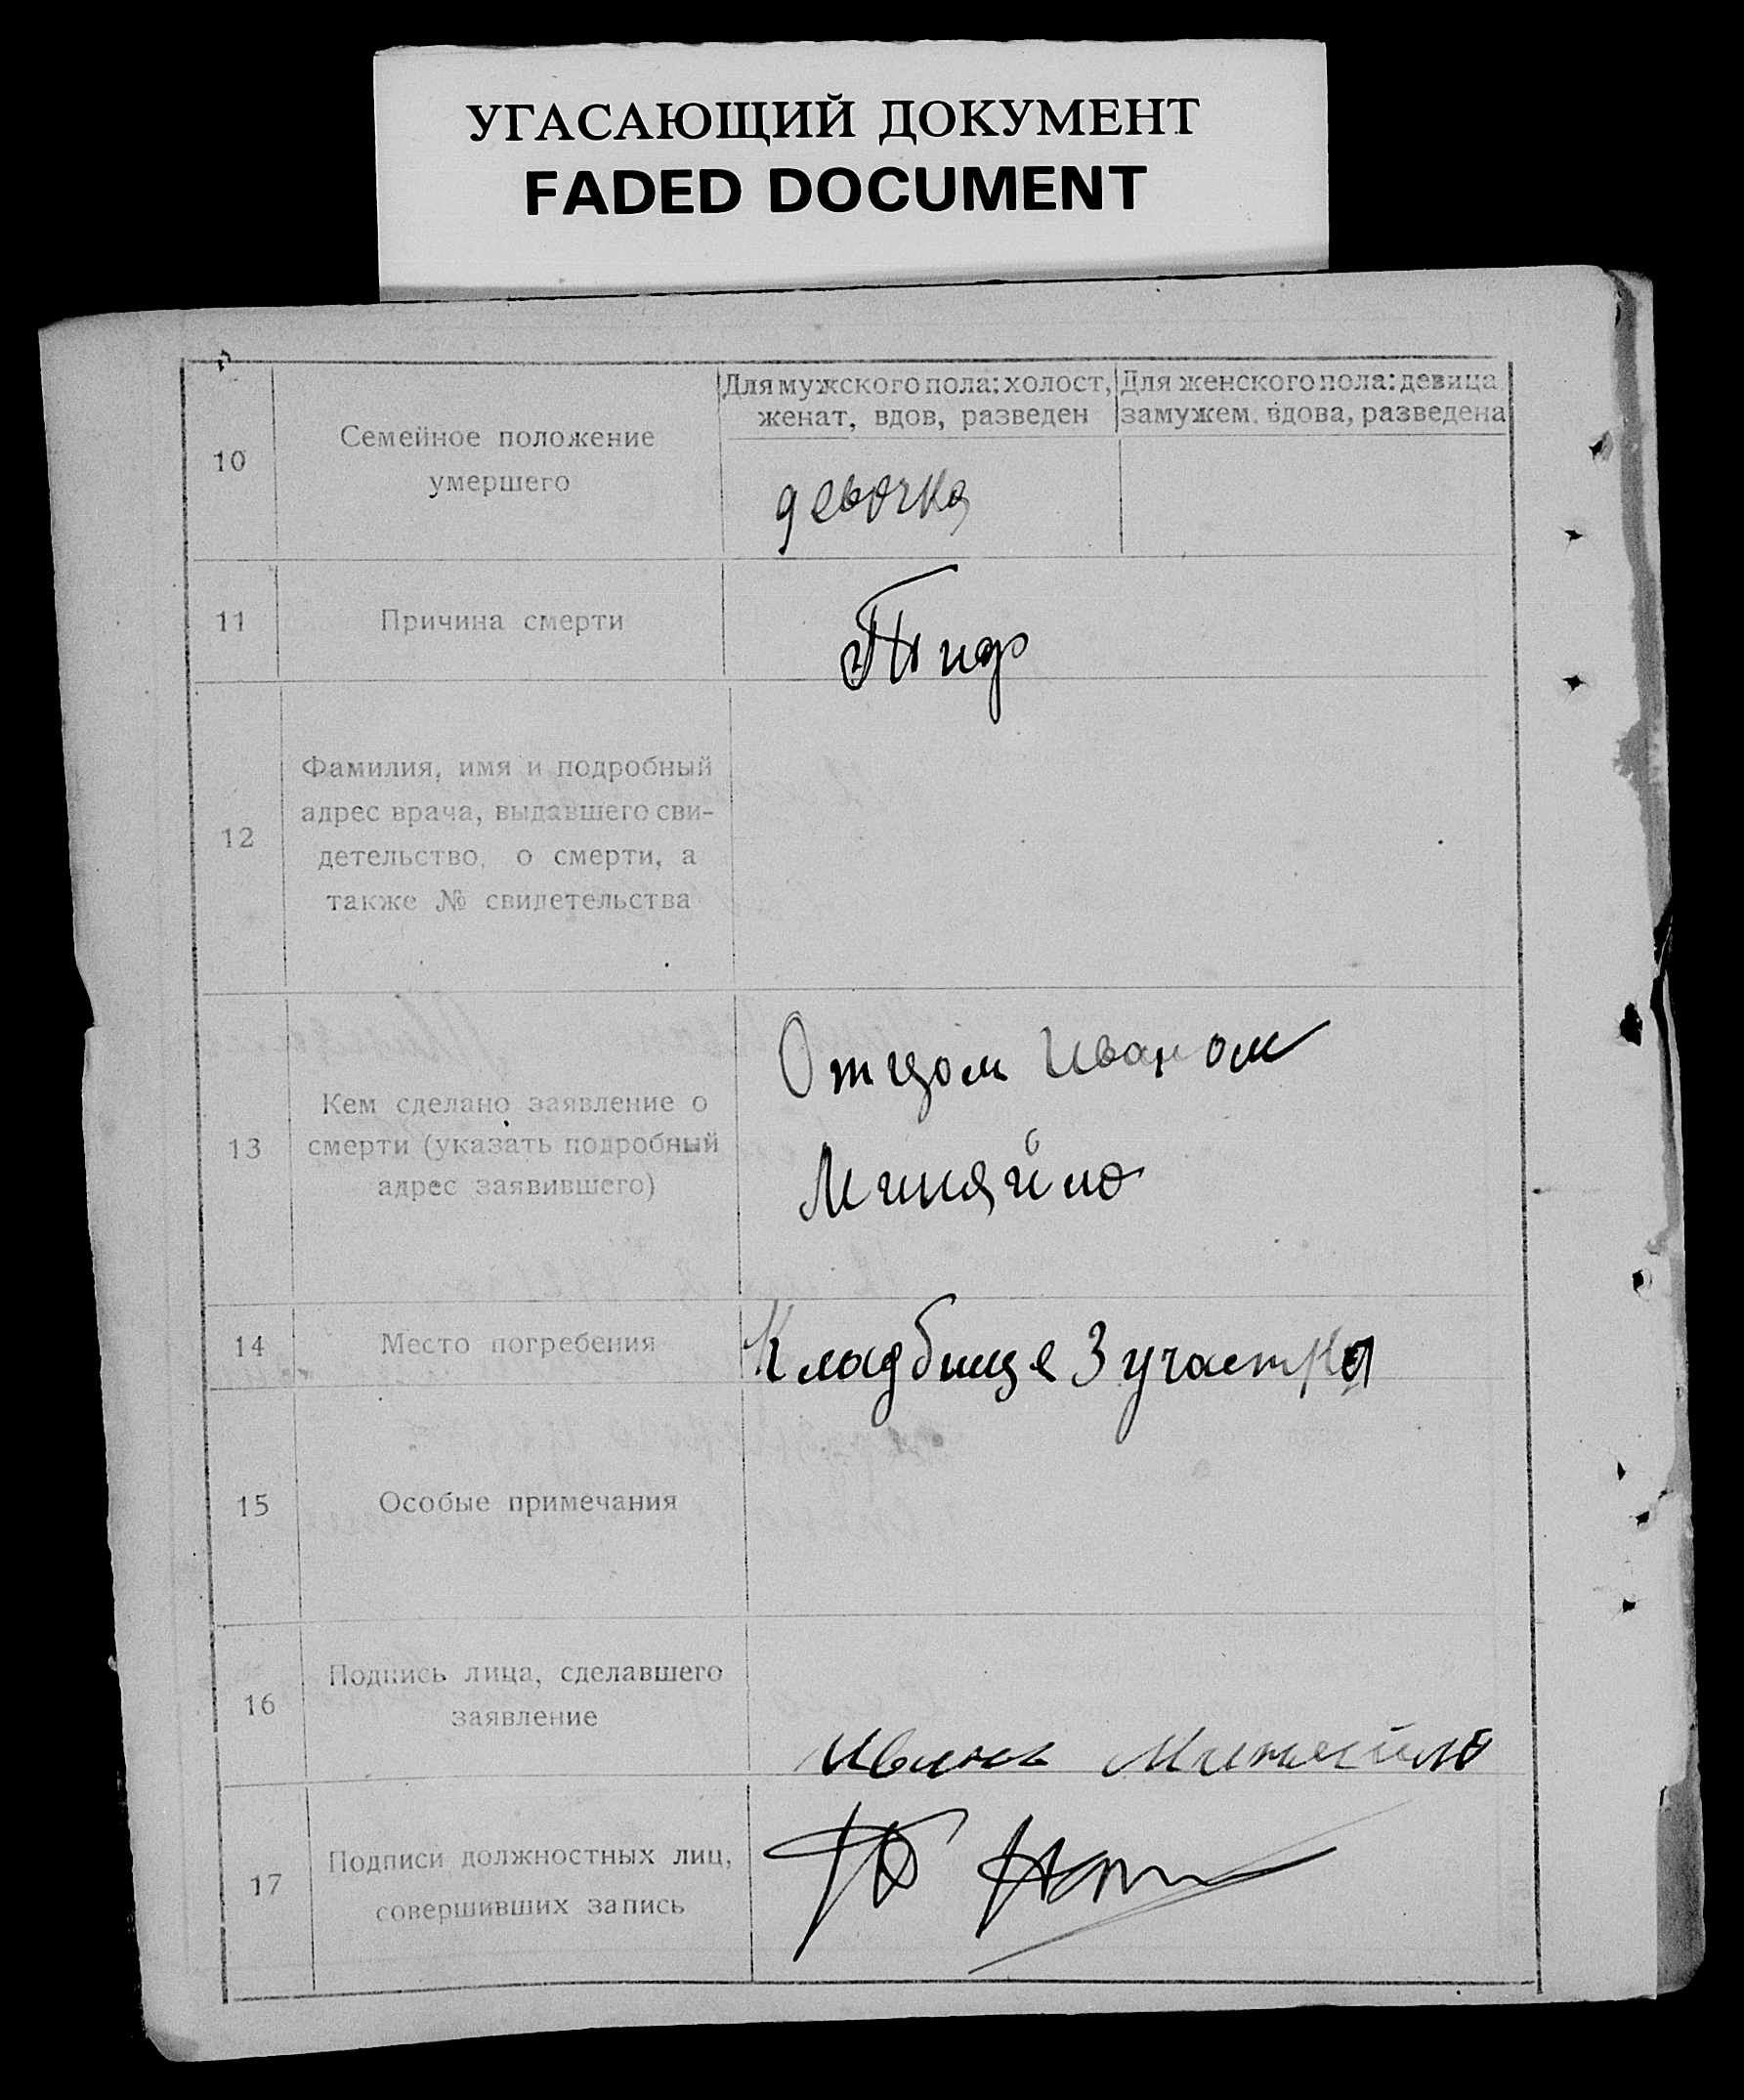 УГАСАЮЩИЙ ДОКУМЕНТ
FADED DOCUMENT
10
Семейное положение
умершего
Для мужского пола: холост,
женат, вдов, разведен
Для женского пола: девица
замужем, вдова, разведена
девочка
11
Причина смерти
12
Фамилия, имя и подробный
адрес врача, выдавшего сви-
детельство, о смерти, а
также № свидетельства
13
Кем сделано заявление о
смерти (указать подробный
адрес заявившего)
Отцом Иваном
Миняйло
14
Место погребения
Кладбище 3 участка
15
Особые примечания
16
Подпись лица, сделавшего
заявление
Миняйло
17
Подписи должностных лиц,
совершивших запись